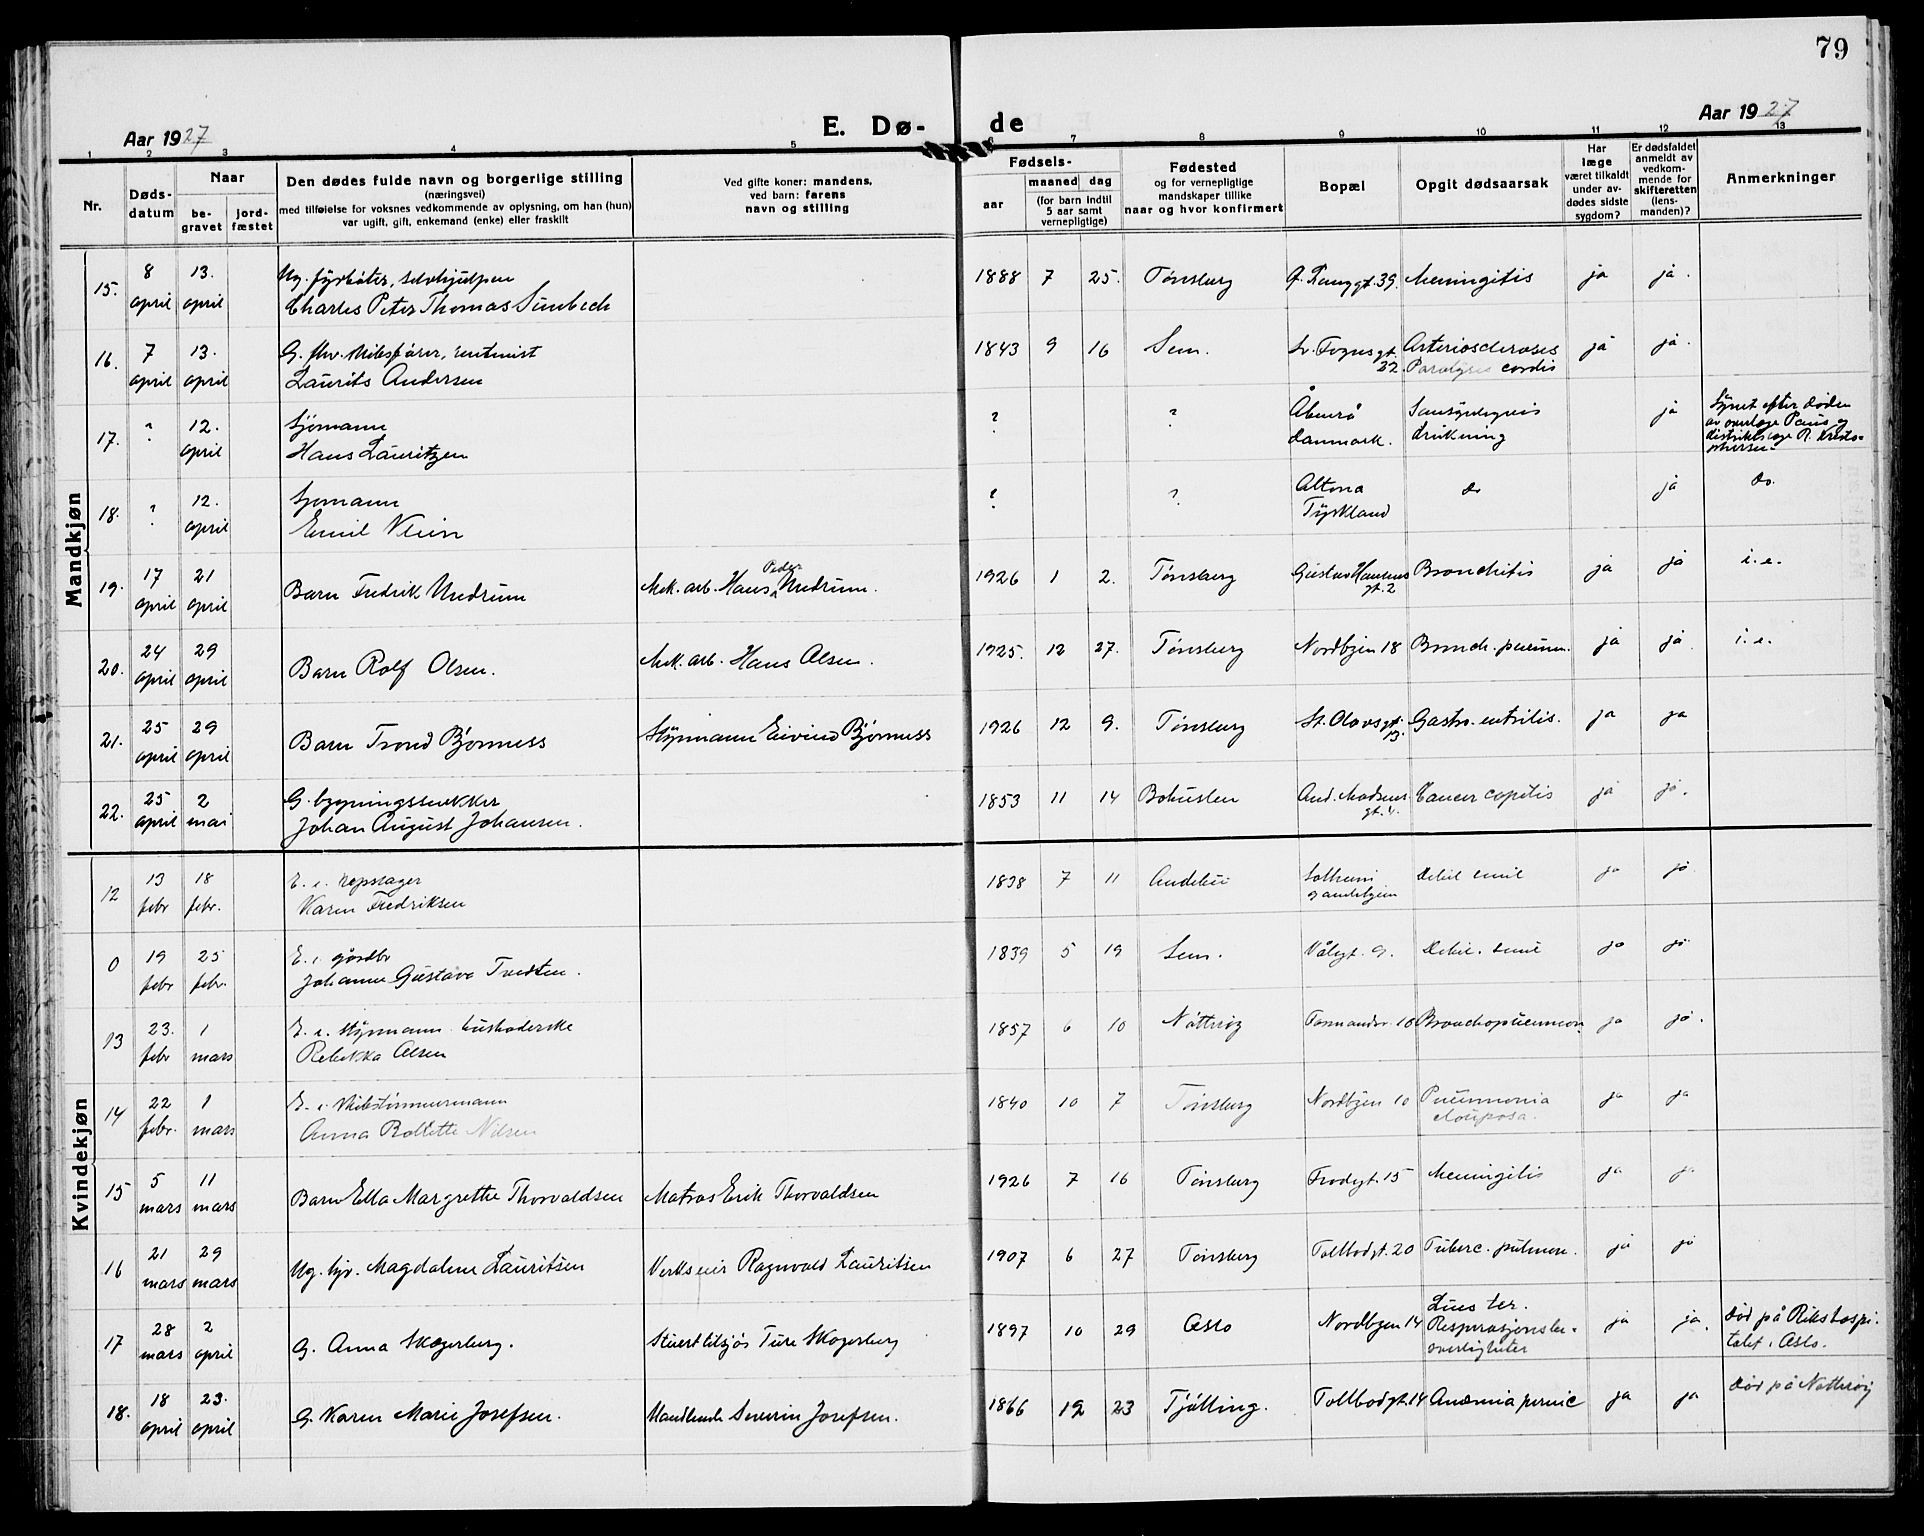 79
Aar 1927
E. Dø- de
Aar 1927
1 2 3 4 5 6 7 8 9 10 11 12 13
Nr.
Døds-
datum
Naar
be-
gravet
jord-
fæstet
Den dødes fulde navn og borgerlige stilling
(næringsvei)
med tilføielse for voksnes vedkommende av oplysning, om han (hun)
var ugift, gift, enkemand (enke) eller fraskilt
Ved gifte koner: mandens,
ved barn: farens
navn og stilling
Fødsels-
aar
maaned dag
(for barn indtil
5 aar samt
vernepligtige)
Fødested
og for vernepligtige
mandskaper tillike
naar og hvor konfirmert
Bopæl
Opgit dødsaarsak
Har
læge
været tilkaldt
under av-
dødes sidste
sygdom?
Er dødsfaldet
anmeldt av
vedkom-
mende for
skifteretten
(lens-
manden)?
Anmerkninger
Mandkjøn
15. 8 april 13. april Ug. fyrbøter, selvhjulpen
Charles Peter Thomas 1888 7 25. Tønsberg 39. Meningitis ja ja.
16. 7 april 13. april G. fhv. skibsfører, rentenist
Laurits Andersen 1843 9 16 Sem. Sv. Foynsgt. 22. Arteriosclerosis
Paralysis cordis ja ja.
17. ? 12. april Sjømann
Hans Lauritzen ? ? Åbenrå
Danmark. Sansynligvis
drukning ja Synet efter døden
av overlæge Paus og
distriktslæge R. Kristo-
phersen.
18. ? 12. april Sjømann
Emil ? ? Altona
Tyskland do ja do.
19. 17 april 21 april Barn Fredrik Undrum Mek. arb. Hans Peder Undrum. 1926 1 2. Tønsberg Gustav Hansens
gt. 2 Bronchitis ja ja i. e.
20. 24 april 29 april Barn Rolf Olsen. Mek. arb. Hans Olsen. 1925. 12 27. Tønsberg Nordbyen 18 Bronch. pneum. ja ja. i. e.
21. 25 april 29 april Barn Trond Bjørness Styrmann Eivind Bjørness 1926 12 9. Tønsberg St. Olavsgt.
13. Gastro-entritis. ja ja
22. 25 april 2 mai G. bygningssnekker
Johan August Johansen. 1853 11 14 Bohuslen And. Madsens
gt. 4. Cancer capitis ja ja.
Kvindekjøn
12 13 febr 18 febr. E. e. repslager
Karen Fredriksen 1838 7 11 Andebu Solheim
gamlehjem Debil. senil ja ja.
0 19 febr 25 febr. E. e. gårdbr
Johanne Gustava Tvedten. 1839 5 19 Sem. 9. Debil. senil ja ja
13 23. febr 1 mars E. e. styrmann
Rebekka Olsen 1857 6 10 Nøtterøy 10 Bronchopneumon. ja ja.
14 22 febr. 1 mars E. e. skibstømmermann
Anna Bollette Nilsen 1840 10 7 Tønsberg Nordbyen 10 Pneumonia
crouposa. ja ja
15 5 mars 11 mars Barn Ella Margrethe Thorvaldsen Matros Erik Thorvaldsen 1926 7 16 Tønsberg Frodegt. 15 Meningitis ja ja
16 21 mars 29 mars Ug. hjv. Magdalene Lauritsen Verkseier Ragnvald Lauritsen 1907 6 27 Tønsberg Tollbodgt. 20 Tuberc. pulmon. ja ja
17 28 mars 2 april G. Anna Skogerberg. Stuert tilsjøs Ture Skogerberg 1897 10 29 Oslo Nordbyen 14 Lues ter.
Respirasjonsbe-
sværligheter ja ja. Død på Rikshospi-
talet i Oslo.
18. 18 april 23. april G. Karen Marie Josefsen. Handlende Severin Josefsen. 1866 12 23 Tjølling. Tollbodgt. 14 Anæmia pernic ja ja Død på Nøtterøy